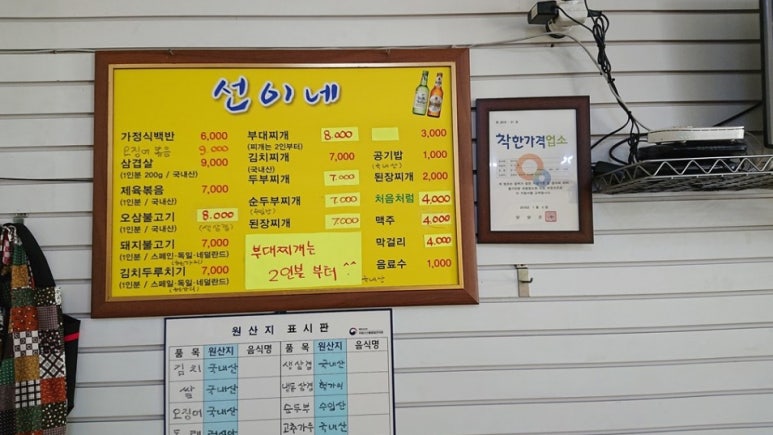 선이네
가정식백반 6,000
오징어 볶음 9,000
삼겹살 9,000
(1인분 200g / 국내산)
제육볶음 7,000
(1인분 / 국내산)
오삼불고기 8.000
돼지불고기 7,000
(1인분 / 스페인·독일·네덜란드)
김치두루치기 7,000
(1인분 / 스페일·독일·네덜란드)
부대찌개 8.000
(찌개는 2인부터)
김치찌개 7,000
(국내산)
두부찌개 7.000
순두부찌개 7.000
된장찌개 7.000
부대찌개는
2인분 부터 ^^
3,000
공기밥 1,000
(국내산)
된장찌개 2,000
처음처럼 4,000
맥주 4,000
막걸리 4,000
음료수 1,000
국내산
착한가격업소
원산지 표시판
품 목 원산지 음식명 품 목 원산지 음식명
김치 국내산 생삼겹 국내산
쌀 국내산 냉동삼겹
오징어 국내산 순두부 수입산
고추가루 국내산